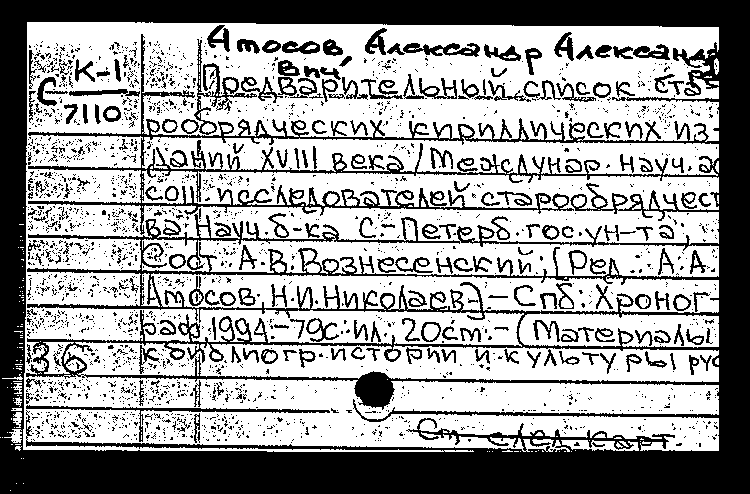 Амосов, Александр Александро
вич,
К-1
С 7110
Предварительный список ста
рообрядческих кириллических из-
даний XVIII века / Междунар. науч. ас
соц. исследователей старообрядчест
ва; Науч. б-ка С.-Петерб. гос. ун-та;
Сост. А.В. Вознесенский; [Ред.: А.А.
Амосов, Н.И. Николаев]. - Спб: Хроног-
раф, 1994. - 79с. ил.; 20см. - (Материалы
36
к библиогр. истории и культуры рус
См. след. карт.